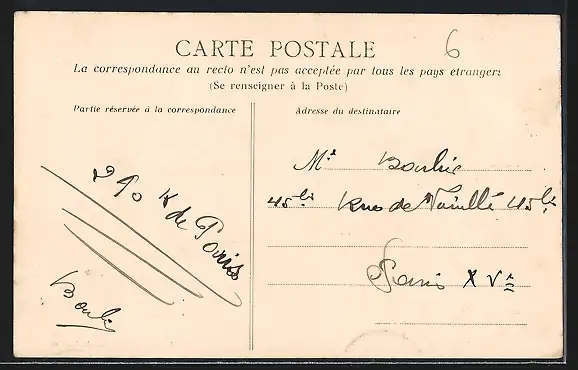 6
CARTE POSTALE
La correspondance au recto n'est pas acceptée par tous les pays etrangers
(Se renseigner à la Poste)
Partie réservée à la correspondance
Adresse du destinataire
270 K de Paris
45 bis Rue de 45 bis
Paris XVe